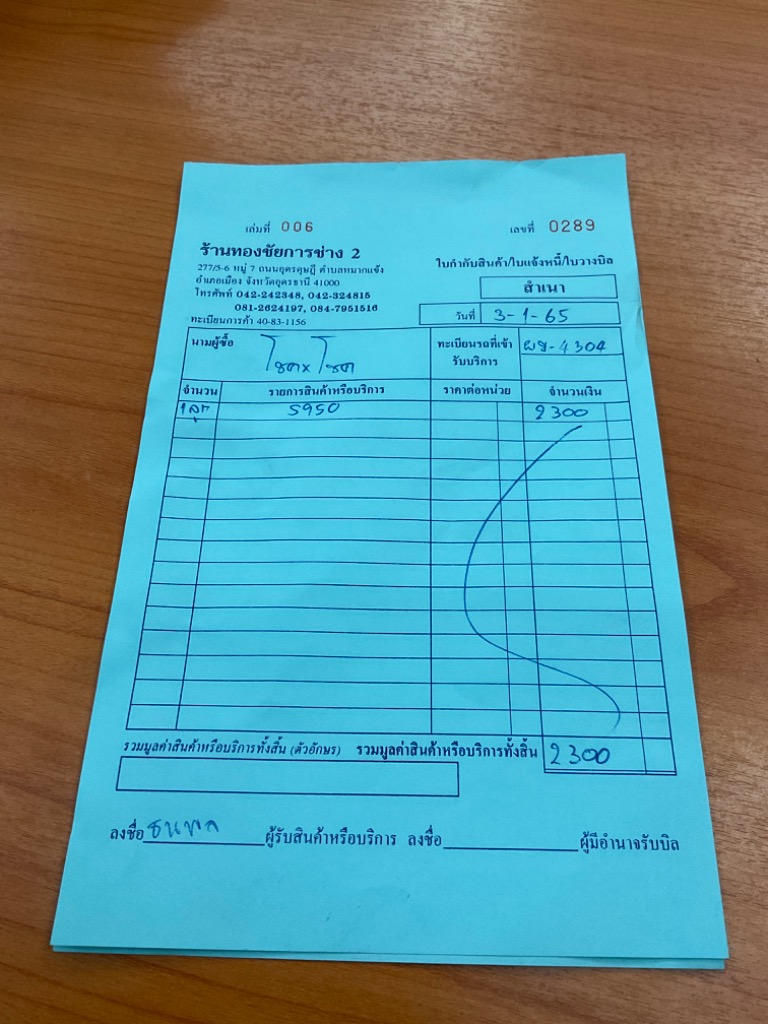 เล่มที่ 006 เลขที่ 0289
ร้านทองชัยการช่าง 2
277/5-6 หมู่ 7 ถนนอุดรดุษฎี ตำบลหมากแข้ง
อำเภอเมือง จังหวัดอุดรธานี 41000
โทรศัพท์ 042-242348, 042-324815
081-2624197, 084-7951516
ทะเบียนการค้า 40-83-1156
ใบกำกับสินค้า/ใบแจ้งหนี้/ใบวางบิล
สำเนา
วันที่ 3-1-65
นามผู้ซื้อ โชคxโชค
ทะเบียนรถที่เข้ารับบริการ ผข-4304
จำนวน รายการสินค้าหรือบริการ ราคาต่อหน่วย จำนวนเงิน
1 ลูก 5950 2300
รวมมูลค่าสินค้าหรือบริการทั้งสิ้น (ตัวอักษร) รวมมูลค่าสินค้าหรือบริการทั้งสิ้น 2300
ลงชื่อ ผู้รับสินค้าหรือบริการ ลงชื่อ ผู้มีอำนาจรับบิล